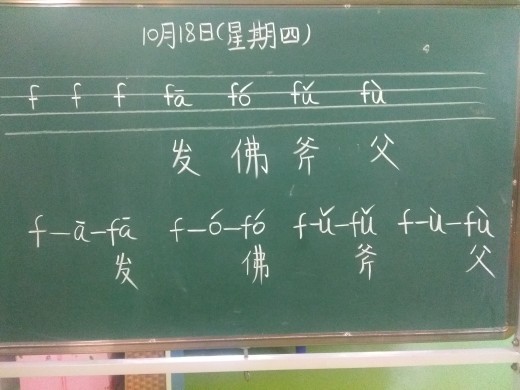 10月18日(星期四)
f f f fā fó fǔ fù
发 佛 斧 父
f-ā-fā f-ó-fó f-ǔ-fǔ f-ù-fù
发 佛 斧 父